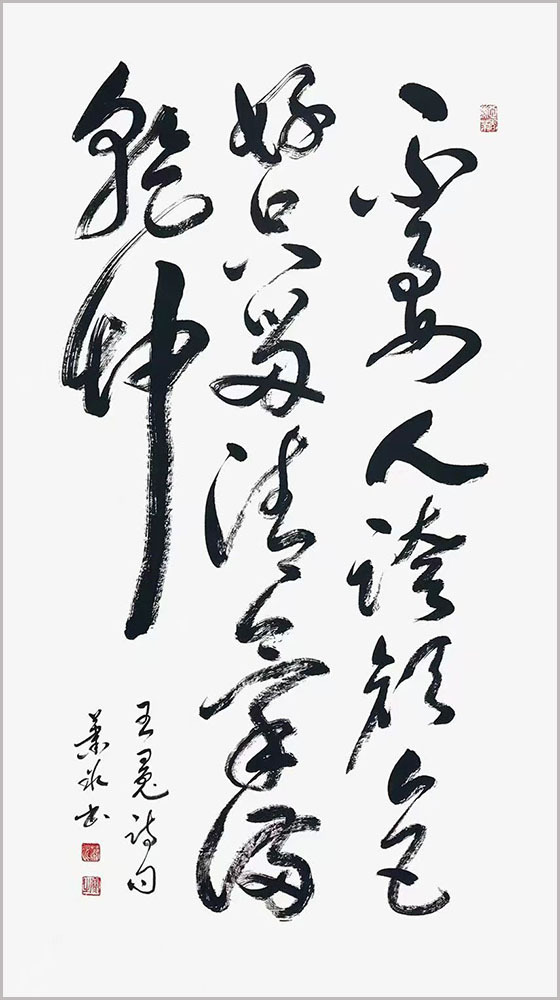 不要人誇顏色
好只留清氣滿
乾坤
王冕詩句
书